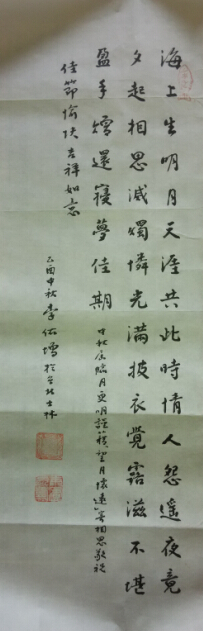 海上生明月天涯共此時情人怨遙夜竟
夕起相思滅燭憐光滿披衣覺露滋不堪
盈手嬑還寢夢佳期
中秋夜臨月更明謹藉望月懷遠寄相思敬祝
佳節愉快吉祥如意
乙酉中秋李佑增於台北士林